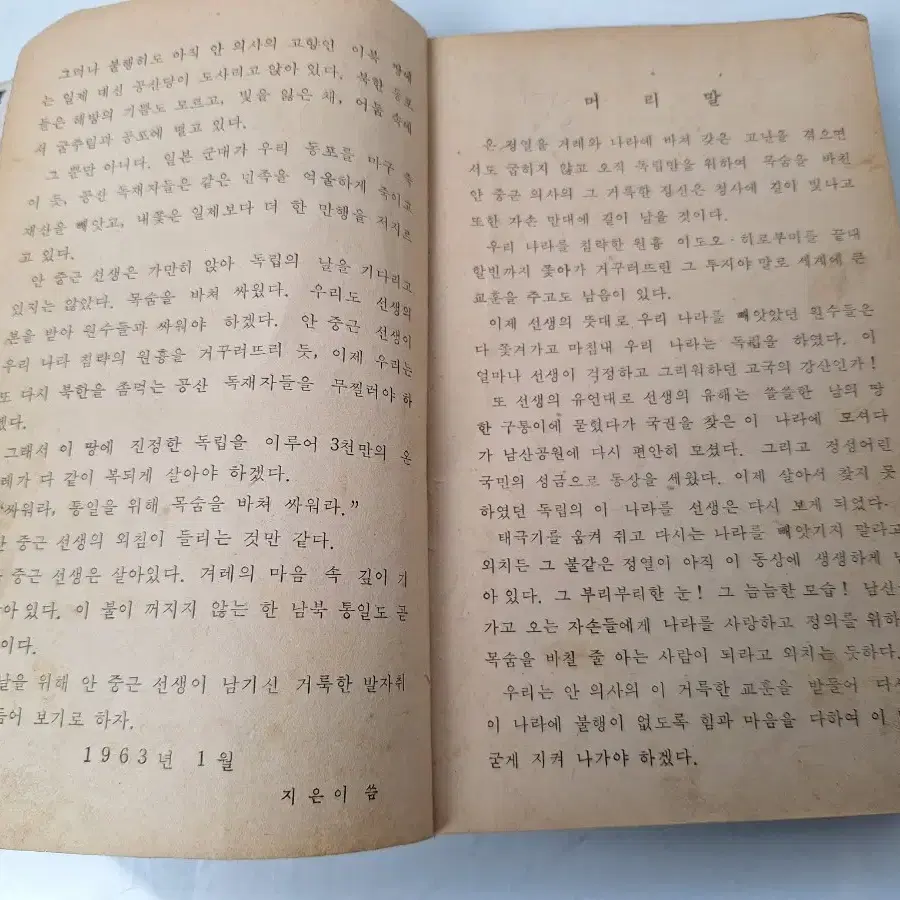 머 리 말
온 정열을 겨레와 나라에 바쳐 갖은 고난을 겪으면
서도 굽히지 않고 오직 독립만을 위하여 목숨을 바친
안 중근 의사의 그 거룩한 정신은 청사에 길이 빛나고
또한 자손 만대에 길이 남을 것이다.
우리 나라를 침략한 원흉 이도오·히로부미를 끝내
할빈까지 쫓아가 거꾸러뜨린 그 투지야 말로 세계에 큰
교훈을 주고도 남음이 있다.
이제 선생의 뜻대로 우리 나라를 빼앗았던 원수들은
다 쫓겨가고 마침내 우리 나라는 독립을 하였다. 이
얼마나 선생이 걱정하고 그리워하던 고국의 강산인가!
또 선생의 유언대로 선생의 유해는 쓸쓸한 남의 땅
한 구통이에 묻혔다가 국권을 찾은 이 나라에 모셔다
가 남산공원에 다시 편안히 모셨다. 그리고 정성어린
국민의 성금으로 동상을 세웠다. 이제 살아서 찾지 못
하였던 독립의 이 나라를 선생은 다시 보게 되었다.
태극기를 움켜 쥐고 다시는 나라를 빼앗기지 말라고
외치든 그 불같은 정열이 아직 이 동상에 생생하게 남
아 있다. 그 부리부리한 눈! 그 늠늠한 모습! 남산을
가고 오는 자손들에게 나라를 사랑하고 정의를 위하
목숨을 바칠 줄 아는 사람이 되라고 외치는 듯하다.
우리는 안 의사의 이 거륵한 교훈을 받들어 다시
이 나라에 불행이 없도록 힘과 마음을 다하여 이
굳게 지켜 나가야 하겠다.
그러나 불행히도 아직 안 의사의 고향인 이북 땅에
는 일제 대신 공산당이 도사리고 앉아 있다. 북한 동포
들은 해방의 기쁨도 모르고, 빛을 잃은 채, 어둠 속에
서 굶주림과 공포에 떨고 있다.
그 뿐만 아니다. 일본 군대가 우리 동포를 마구 죽
이 듯, 공산 독재자들은 같은 민족을 억울하게 죽이고
재산을 빼앗고, 내쫓은 일제보다 더 한 만행을 저지르
고 있다.
안 중근 선생은 가만히 앉아 독립의 날을 기다리고
있지는 않았다. 목숨을 바쳐 싸웠다. 우리도 선생의
본을 받아 원수들과 싸워야 하겠다. 안 중근 선생이
우리 나라 침략의 원흉을 거꾸러뜨리 듯, 이제 우리는
또 다시 북한을 좀먹는 공산 독재자들을 무찔러야 하
겠다.
그래서 이 땅에 진정한 독립을 이루어 3천만의 온
레가 다 같이 복되게 살아야 하겠다.
“싸워라, 통일을 위해 목숨을 바쳐 싸워라.”
안 중근 선생의 외침이 들리는 것만 같다.
중근 선생은 살아있다. 겨레의 마음 속 깊이 기
아 있다. 이 불이 꺼지지 않는 한 남북 통일도 곧
이다.
날을 위해 안 중근 선생이 남기신 거룩한 발자취
듬어 보기로 하자.
1963년 1월
지은이 씀